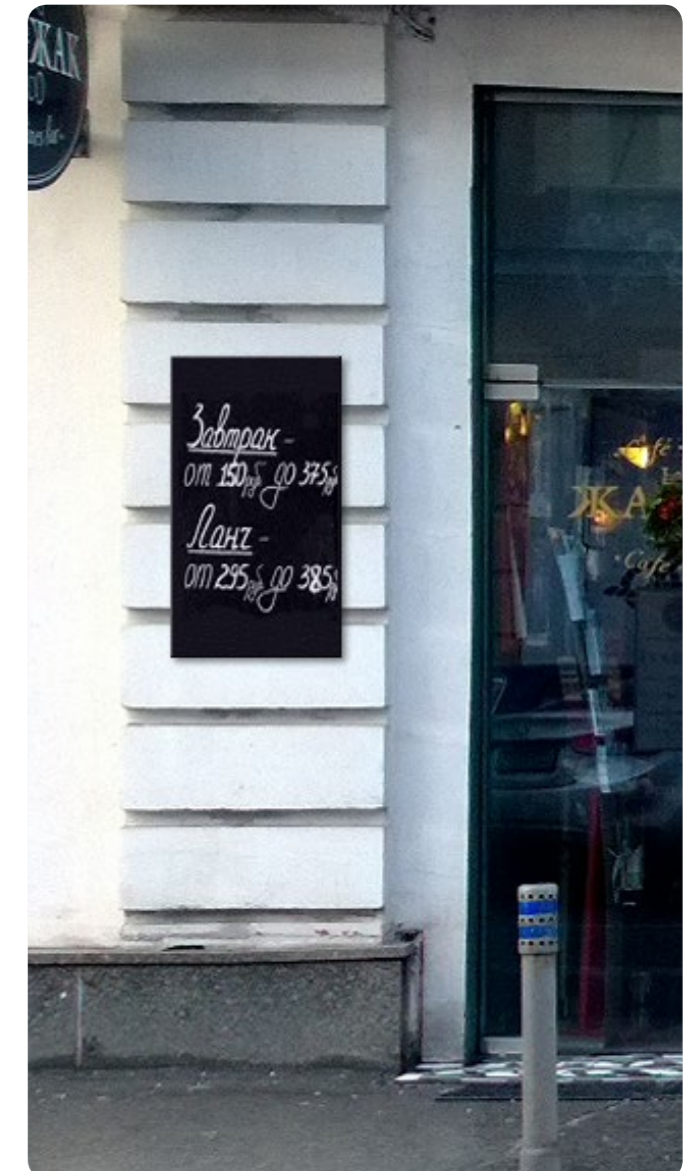 ЖАК
Завтрак -
от 150 руб до 375 руб
Ланч -
от 295 руб до 385 р
Café
ЖА
Cafe